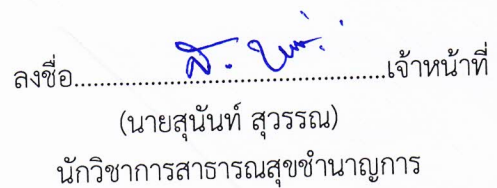 ลงชื่อ................................................เจ้าหน้าที่
(นายสุนันท์ สุวรรณ)
นักวิชาการสาธารณสุขชำนาญการ